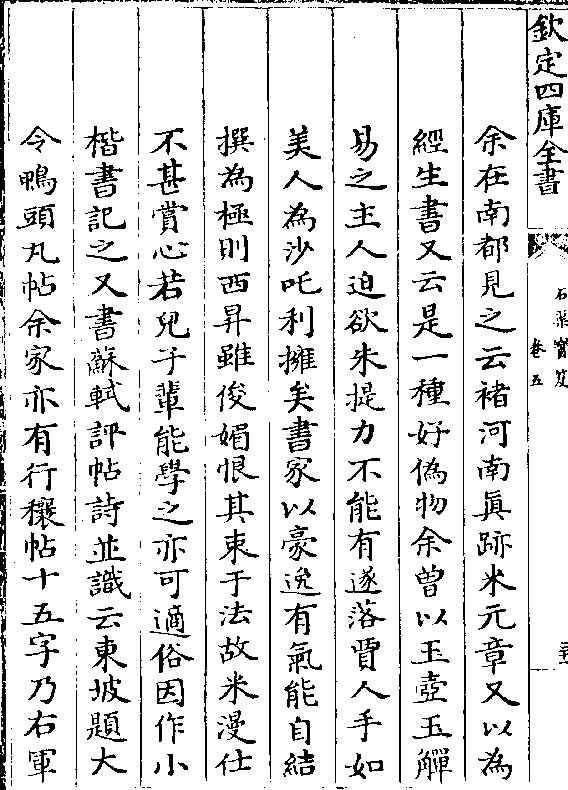 欽定四庫全書
石渠寶笈
卷五
余在南都見之云褚河南眞跡米元章又以為
經生書又云是一種好偽物余曾以玉壺玉觶
易之主人迫欲朱提力不能有遂落賈人手如
美人為沙吒利擁矣書家以豪逸有氣能自結
撰為極則西昇雖俊媚恨其束于法故米漫仕
不甚賞心若兒子輩能學之亦可適俗因作小
楷書記之又書蘇軾評帖詩並識云東坡題大
令鴨頭丸帖余家亦有行穰帖十五字乃右軍